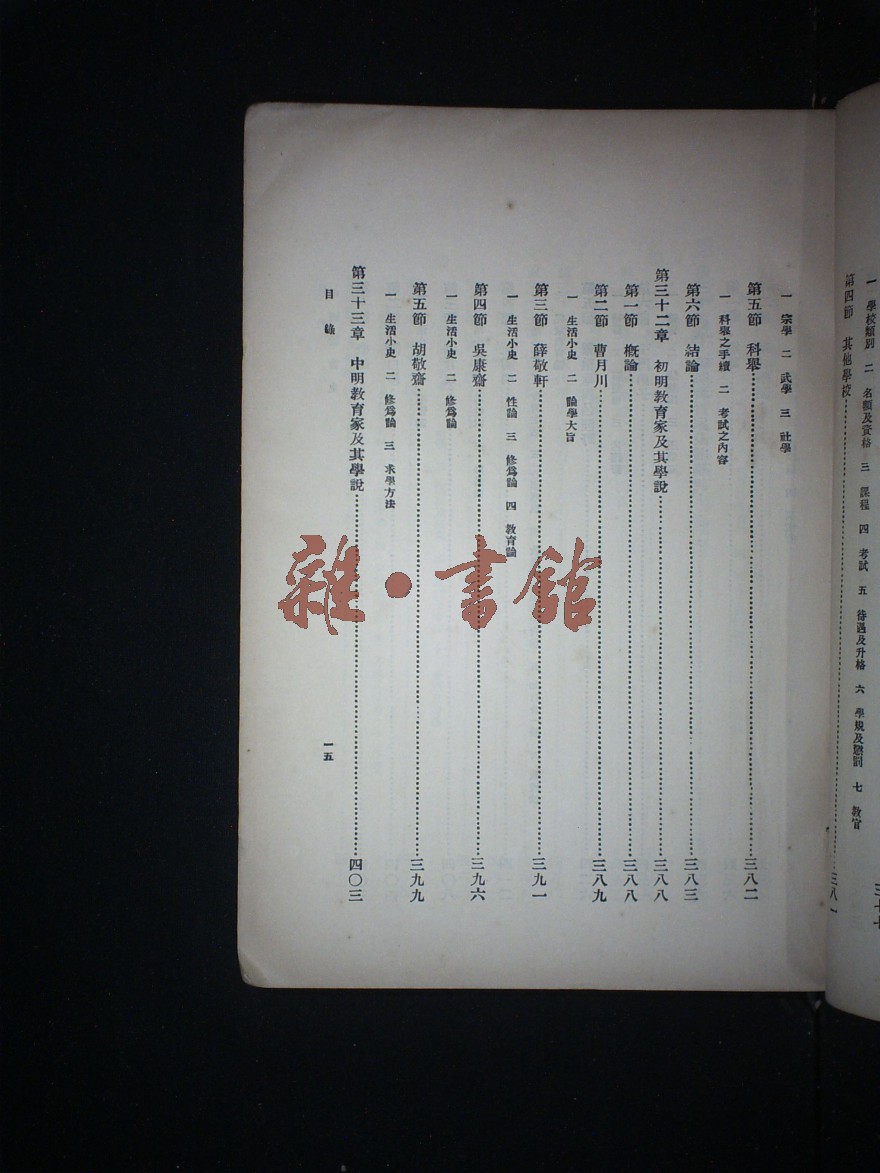 一 學校類別 二 名額及資格 三 課程 四 考試 五 待遇及升格 六 學規及懲罰 七 教官
第四節 其他學校……三八一
一 宗學 二 武學 三 社學
第五節 科舉……三八二
一 科舉之手續 二 考試之內容
第六節 結論……三八三
第三十二章 初明教育家及其學說……三八八
第一節 概論……三八八
第二節 曹月川……三八九
一 生活小史 二 論學大旨
第三節 薛敬軒……三九一
一 生活小史 二 性論 三 修爲論 四 教育論
第四節 吳康齋……三九六
一 生活小史 二 修爲論
第五節 胡敬齋……三九九
一 生活小史 二 修爲論 三 求學方法
第三十三章 中明教育家及其學說……四〇三
目錄 一五
雜·書館